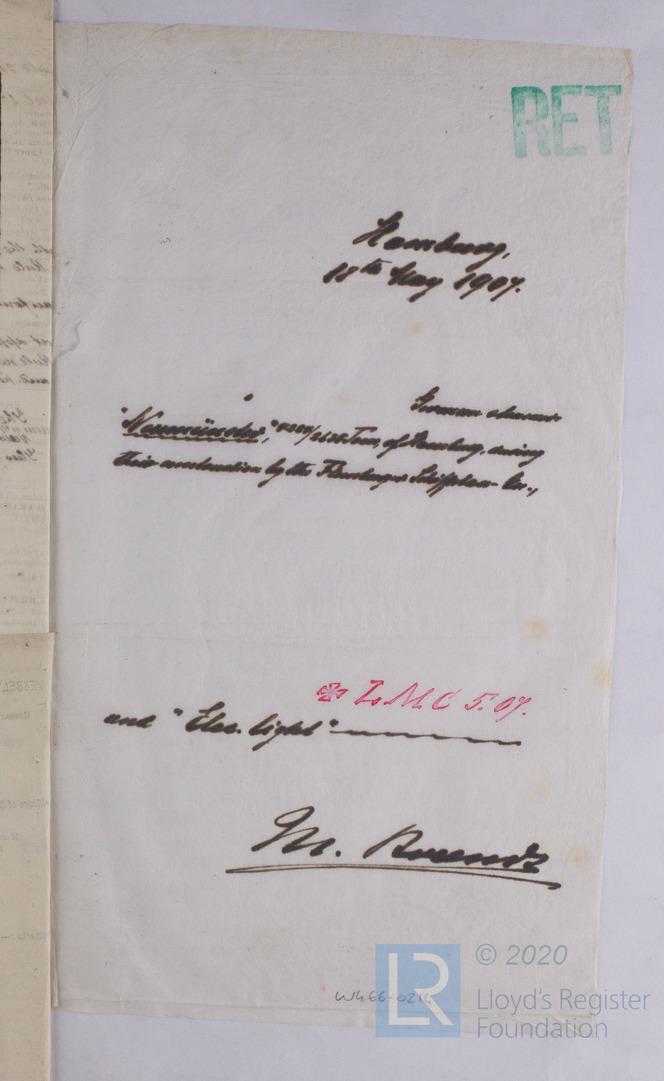 RET
Hamburg,
18th May 1907.
German steamer
"Neumünster", 4224/2622 Tons, of Hamburg, during
their construction by the Flensburger Schiffsbau Ges.,
LMC 5.07.
and "Elec. light"
M.
W466-0214
LR
© 2020
Lloyd's Register
Foundation